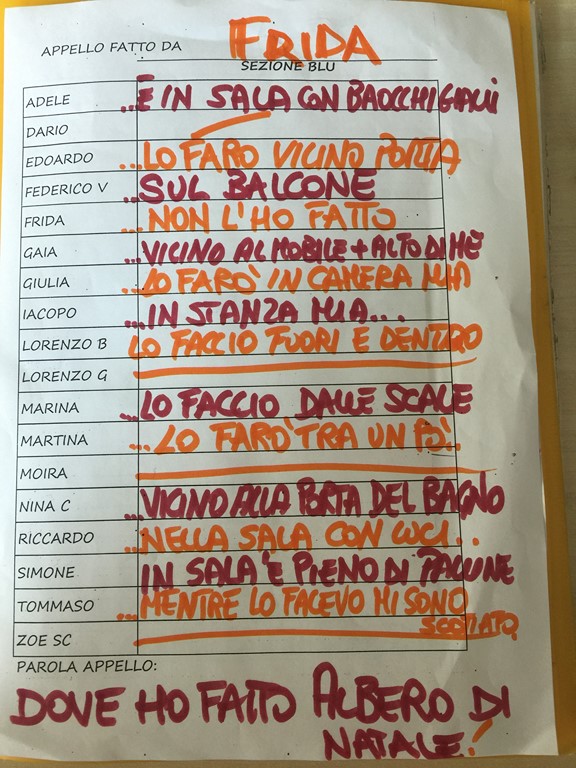 APPELLO FATTO DA FRIDA
SEZIONE BLU
ADELE ...È IN SALA CON BAOCCHI GIALLI
DARIO
EDOARDO ...LO FARO VICINO PORTA
FEDERICO V ...SUL BALCONE
FRIDA ...NON L'HO FATTO
GAIA ...VICINO AL MOBILE + ALTO DI ME
GIULIA ...LO FARO' IN CAMERA MIA
IACOPO ...IN STANZA MIA...
LORENZO B LO FACCIO FUORI E DENTRO
LORENZO G
MARINA ...LO FACCIO DALLE SCALE
MARTINA ...LO FARO' TRA UN PÒ..
MOIRA
NINA C ...VICINO ALLA PORTA DEL BAGNO
RICCARDO ...NELLA SALA CON LUCI..
SIMONE IN SALA È PIENO DI PALLINE
TOMMASO ...MENTRE LO FACEVO MI SONO
SCOTTATO
ZOE SC
PAROLA APPELLO:
DOVE HO FATTO ALBERO DI
NATALE!